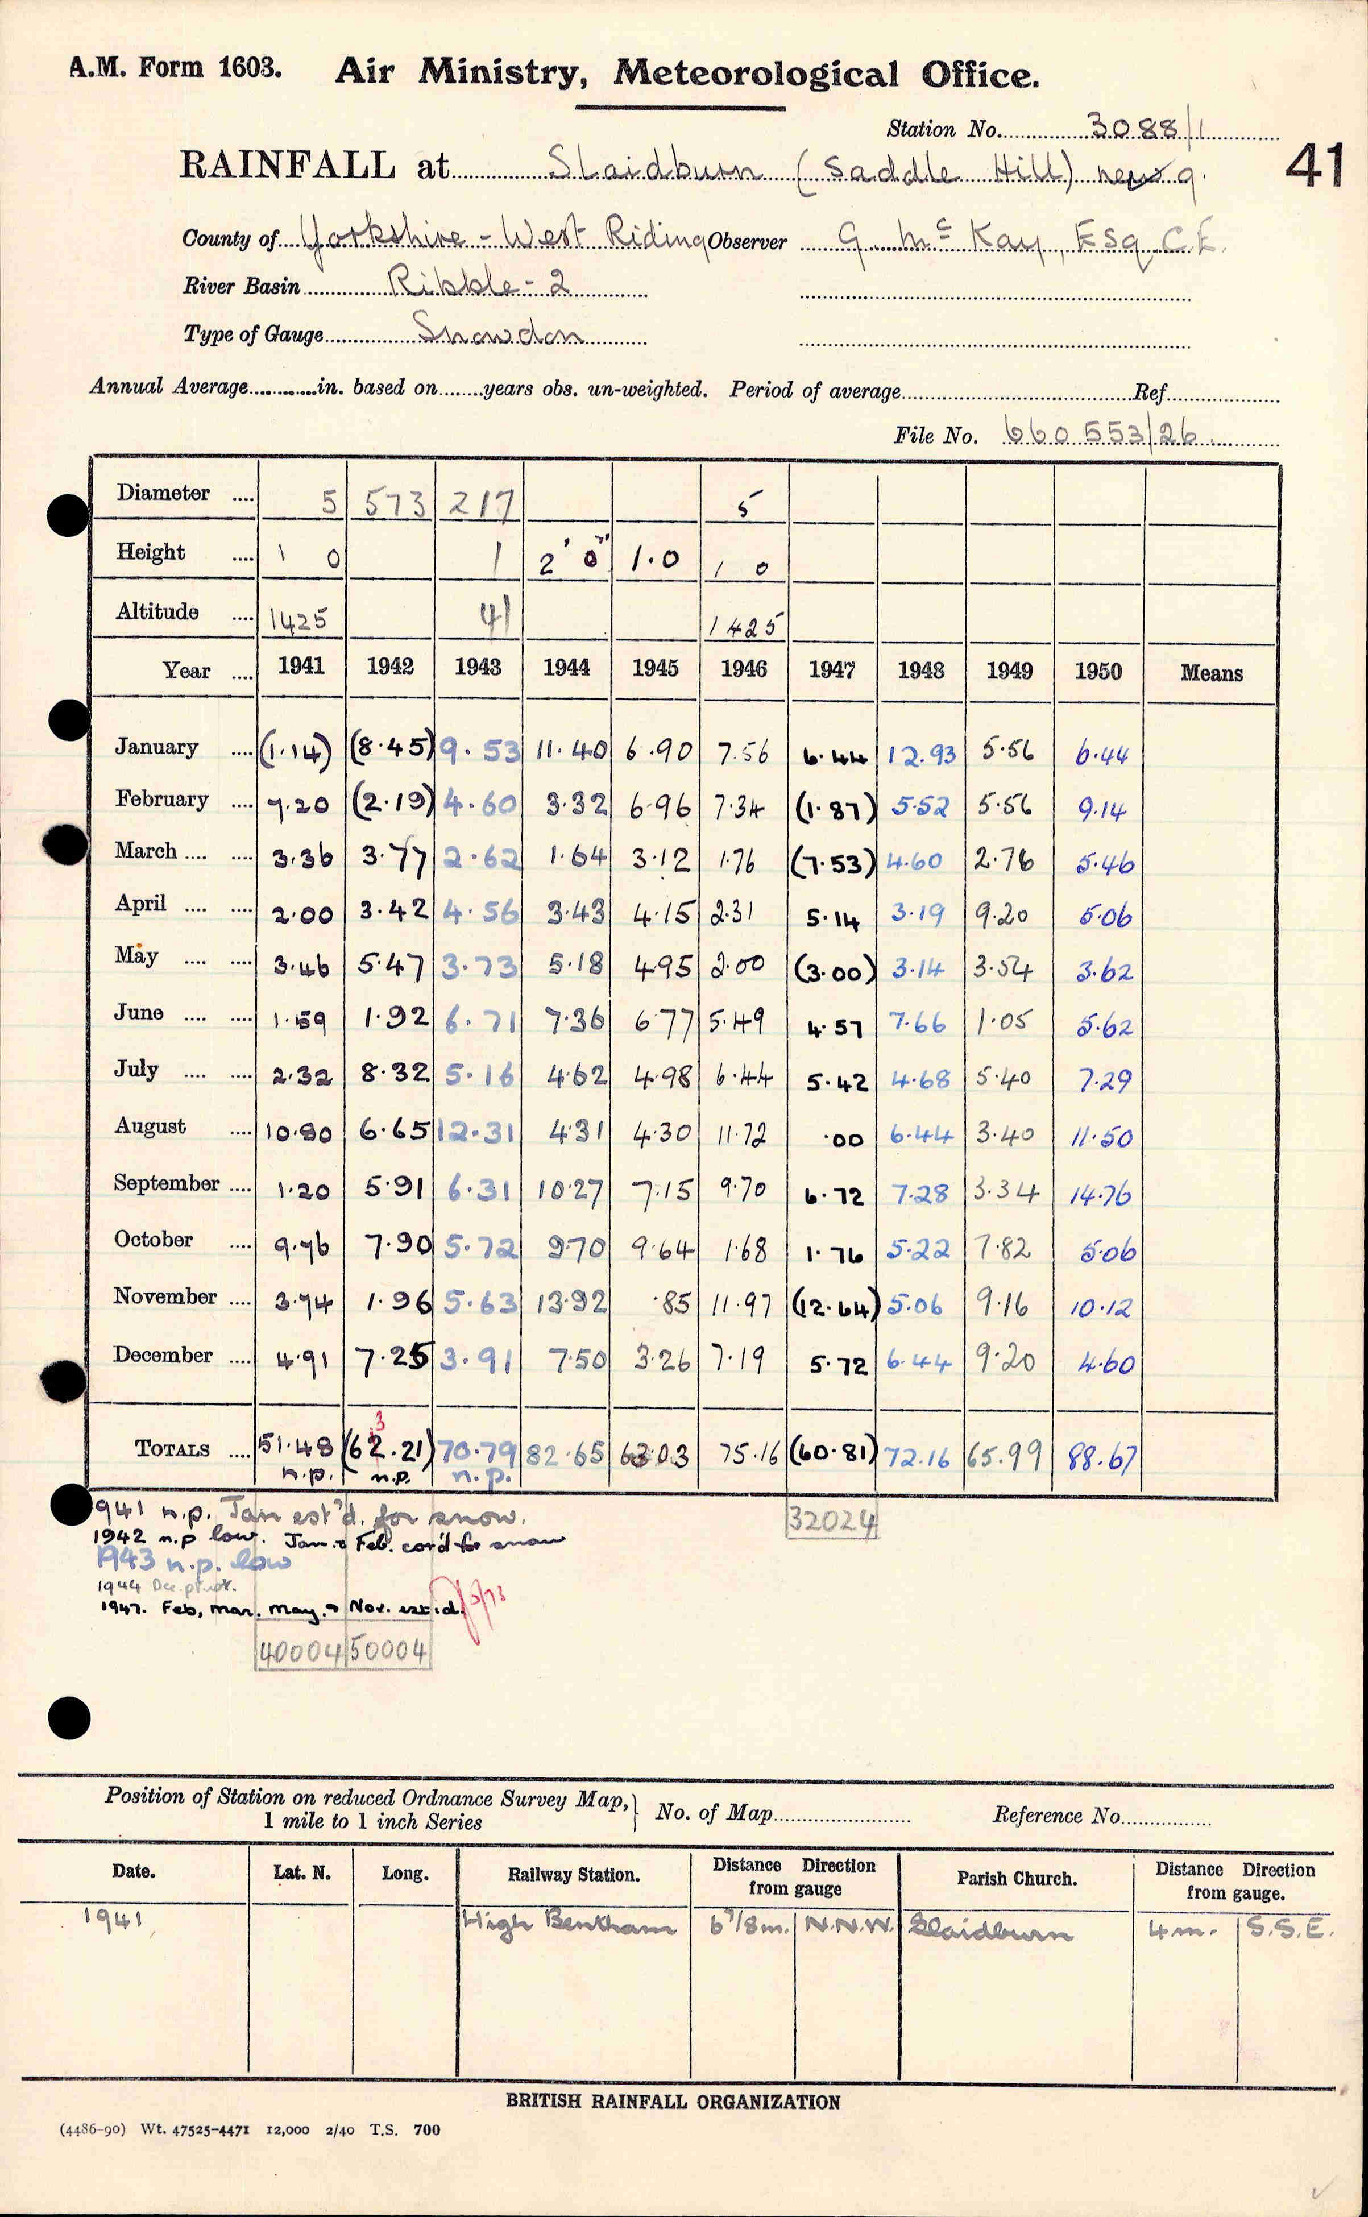 A.M. Form 1603. Air Ministry, Meteorological Office.
Station No. 3088/1
RAINFALL at Slaidburn (Saddle Hill) new g. 41
County of Yorkshire - West Riding Observer G. Mc Kay, Esq, C.E.
River Basin Ribble - 2
Type of Gauge Snowdon
Annual Average in. based on years obs. un-weighted. Period of average Ref
File No. 660 553/26
Diameter .... 5 573 217 5
Height .... 1 0 1 2' 0" 1.0 1 0
Altitude .... 1425 41 1425
Year .... 1941 1942 1943 1944 1945 1946 1947 1948 1949 1950 Means
January .... (1.14) (8.45) 9.53 11.40 6.90 7.56 6.44 12.93 5.56 6.44
February .... 7.20 (2.19) 4.60 3.32 6.96 7.34 (1.87) 5.52 5.56 9.14
March .... .... 3.36 3.77 2.62 1.64 3.12 1.76 (7.53) 4.60 2.76 5.46
April .... .... 2.00 3.42 4.56 3.43 4.15 2.31 5.14 3.19 9.20 5.06
May .... .... 3.46 5.47 3.73 5.18 4.95 2.00 (3.00) 3.14 3.54 3.62
June .... .... 1.59 1.92 6.71 7.36 6.77 5.49 4.57 7.66 1.05 5.62
July .... .... 2.32 8.32 5.16 4.62 4.98 6.44 5.42 4.68 5.40 7.29
August .... 10.80 6.65 12.31 4.31 4.30 11.72 .00 6.44 3.40 11.50
September .... 1.20 5.91 6.31 10.27 7.15 9.70 6.72 7.28 3.34 14.76
October .... 9.76 7.90 5.72 9.70 9.64 1.68 1.76 5.22 7.82 5.06
November .... 3.74 1.96 5.63 13.92 .85 11.97 (12.64) 5.06 9.16 10.12
December .... 4.91 7.25 3.91 7.50 3.26 7.19 5.72 6.44 9.20 4.60
3
TOTALS .... 51.48 (62.21) 70.79 82.65 63.03 75.16 (60.81) 72.16 65.99 88.67
n.p. n.p. n.p.
1941 n.p. Jan est'd. for snow. 32024
1942 n.p low. Jan. & Feb. cor'd for snow
1943 n.p. low
1944 Dec.
1947. Feb, mar. may. & Nov. est'd.
40004 50004
Position of Station on reduced Ordnance Survey Map, 1 mile to 1 inch Series No. of Map Reference No.
Date. Lat. N. Long. Railway Station. Distance Direction from gauge Parish Church. Distance Direction from gauge.
1941 High Bentham 6 7/8 m. N.N.W. Slaidburn 4 m. S.S.E.
BRITISH RAINFALL ORGANIZATION
(4486-90) Wt. 47525-4471 12,000 2/40 T.S. 700